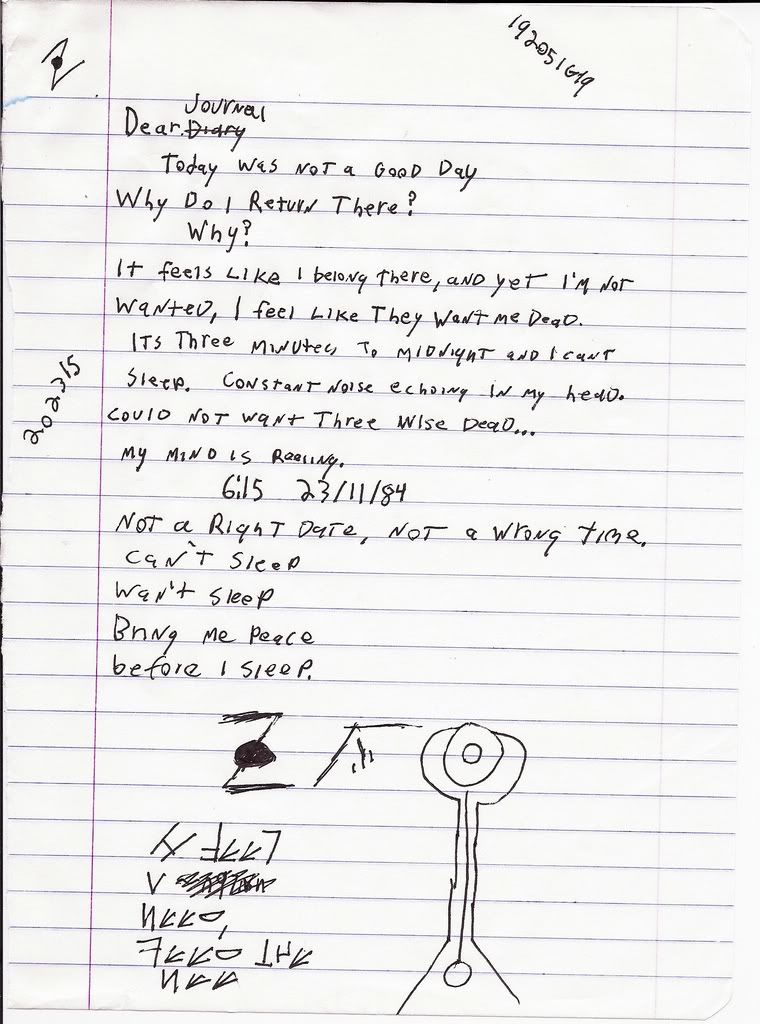 192051619
JOURNAL
Dear Diary
Today was not a Good Day
Why Do I Return There?
Why?
It feels Like I belong there, and yet I'm not
wanted, I feel Like They Want me Dead.
Its Three minutes To midnight and I cant
Sleep. Constant noise echoing in my head.
202315
could not want Three Wise Dead...
my mind is Reeling.
6:15 23/11/84
Not a Right Date, Not a wrong time.
can't sleep
Wan't sleep
Bring me peace
before I sleep.